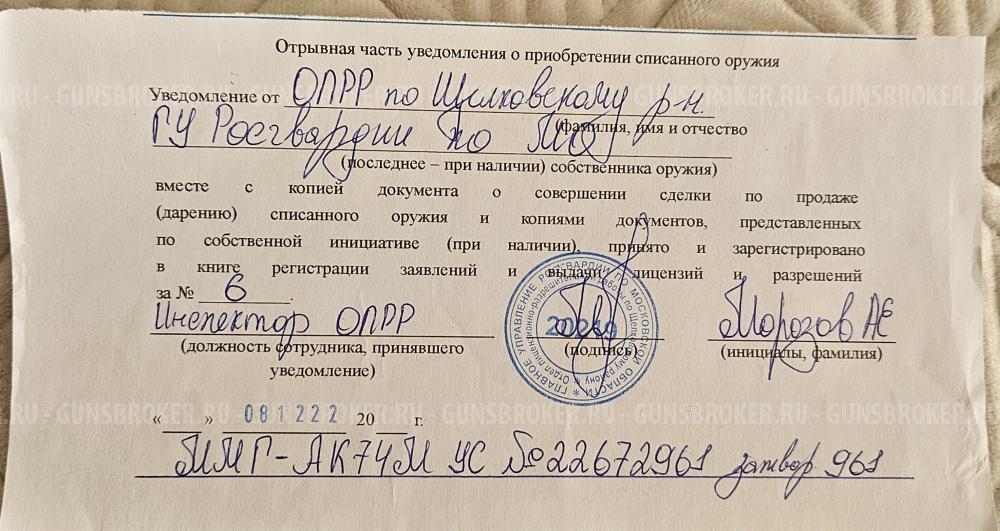 Отрывная часть уведомления о приобретении списанного оружия
Уведомление от ОЛРР по Щелковскому р-н.
(фамилия, имя и отчество
ГУ Росгвардии по МО
(последнее – при наличии) собственника оружия)
вместе с копией документа о совершении сделки по продаже
(дарению) списанного оружия и копиями документов, представленных
по собственной инициативе (при наличии), принято и зарегистрировано
в книге регистрации заявлений и выдачи лицензий и разрешений
за № 6.
Инспектор ОЛРР Морозов АЕ
(должность сотрудника, принявшего (подпись) (инициалы, фамилия)
уведомление)
ГЛАВНОЕ УПРАВЛЕНИЕ РОСГВАРДИИ ПО МОСКОВСКОЙ ОБЛАСТИ *
Отдел лицензионно-разрешительной работы по Щелковскому району *
« » 081222 20 г.
ММГ-АК74М УС №22672961 затвор 961
GUNSBROKER.RU - GUNSBROKER.RU - GUNSBROKER.RU